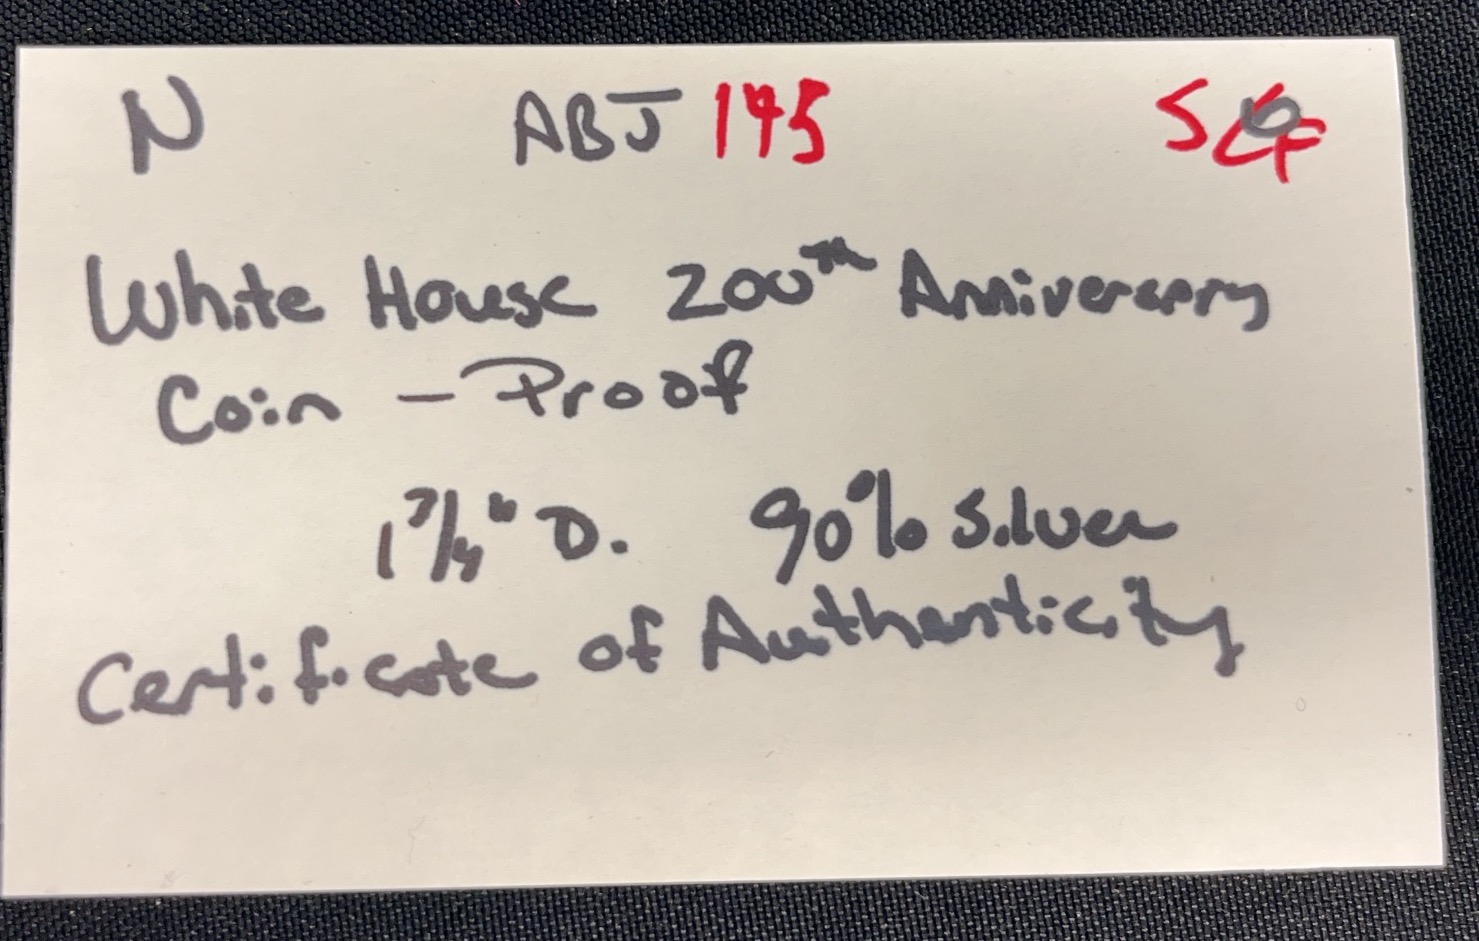 N ABJ 145
White House 200th Anniversary
Coin - Proof
1 7/4" D. 90% Silver
Certificate of Authenticity